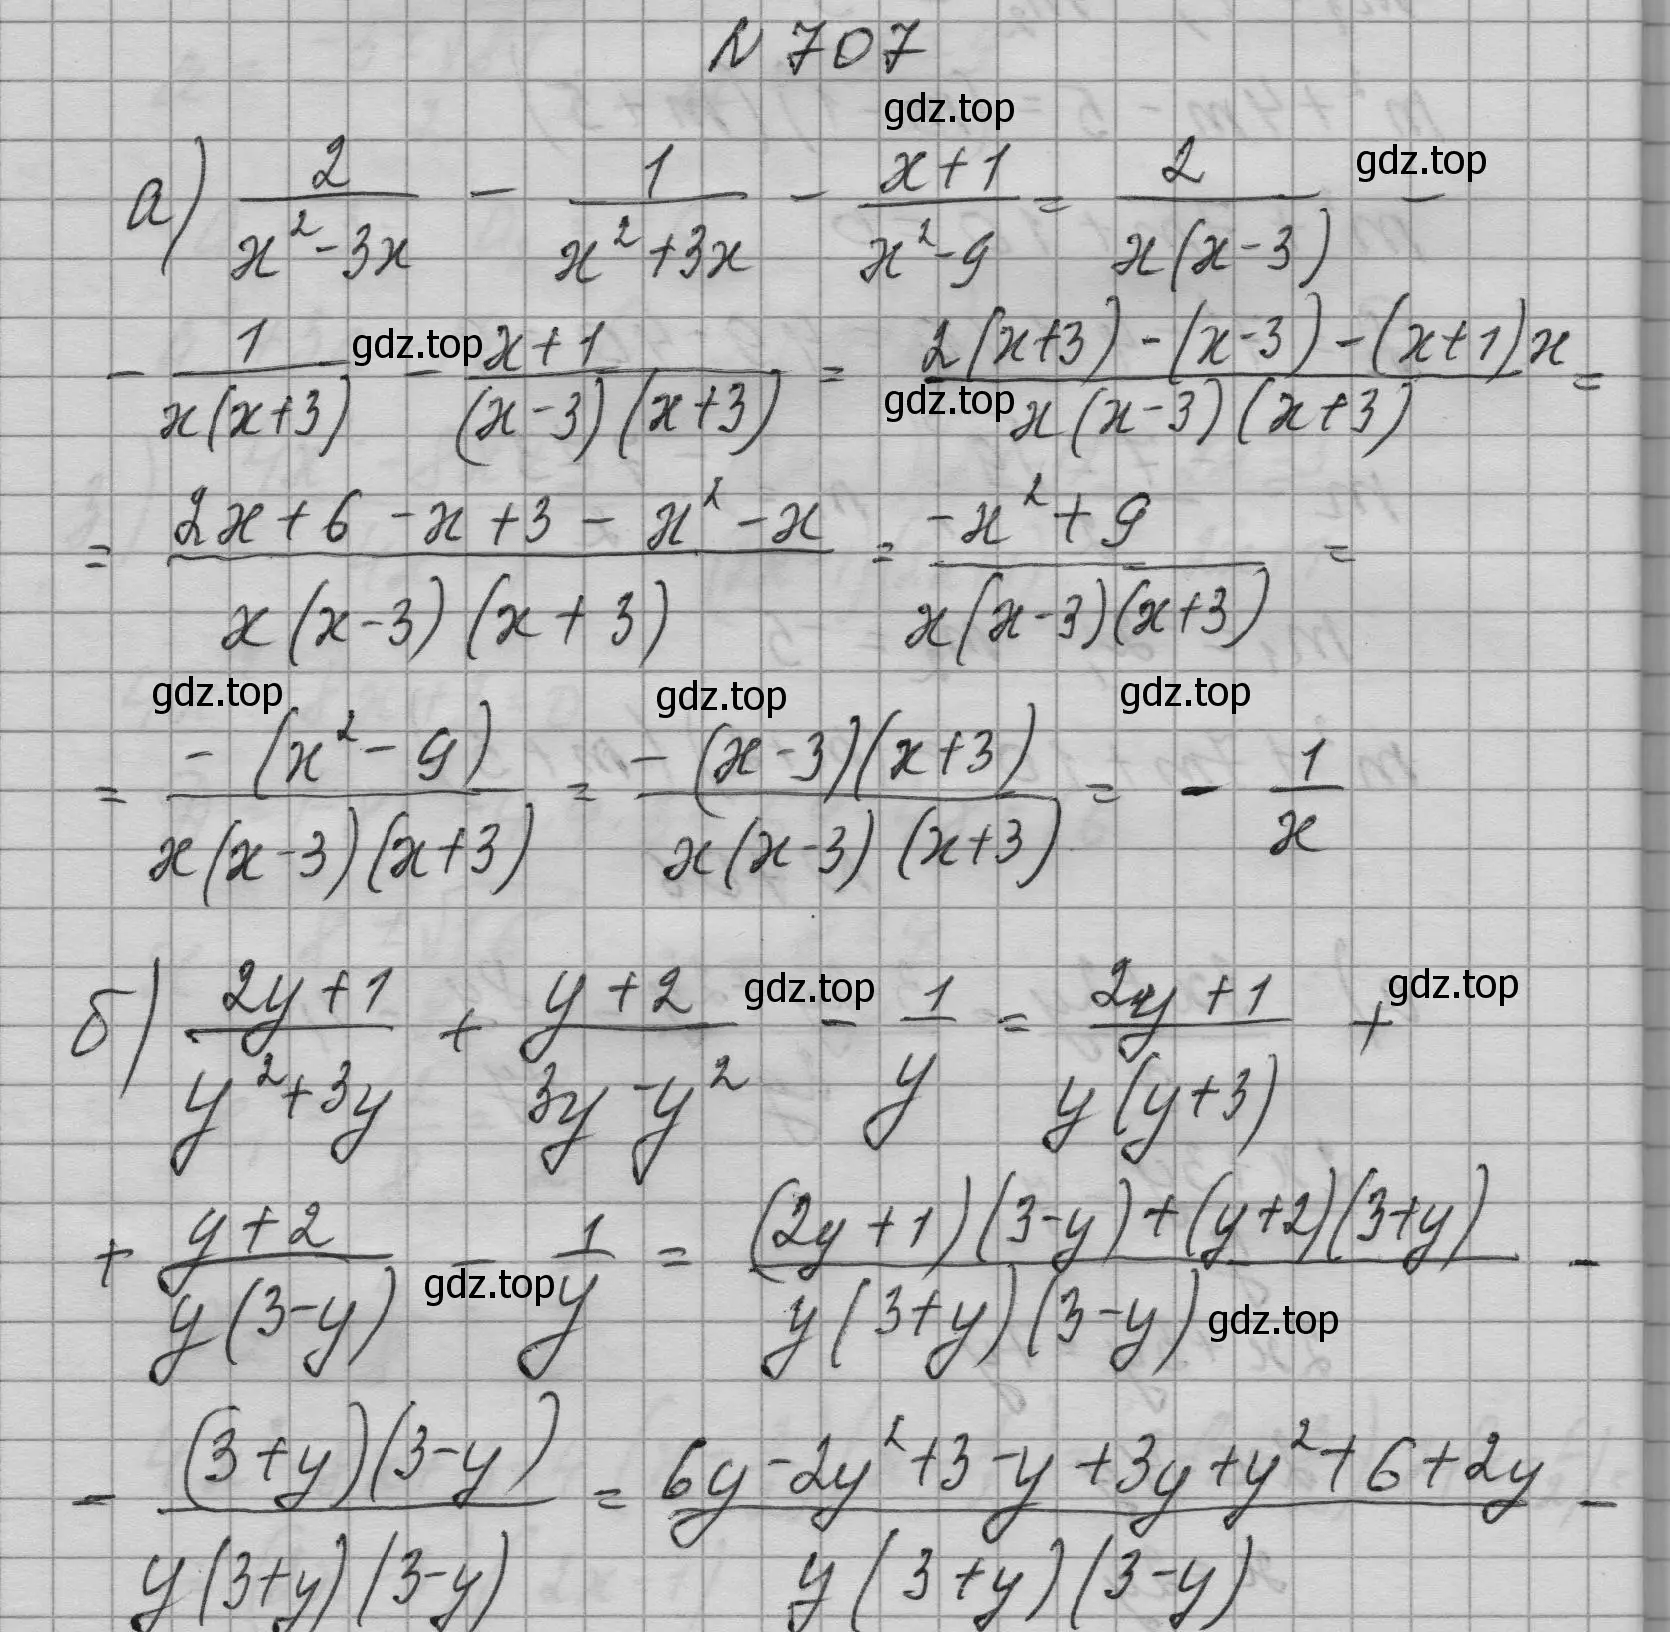 N 707
gdz.top
а) 2/(x² - 3x) - 1/(x² + 3x) - (x + 1)/(x² - 9) = 2/(x(x - 3)) - gdz.top
- 1/(x(x + 3)) gdz.top - (x + 1)/((x - 3)(x + 3)) = (2(x + 3) - (x - 3) - (x + 1)x)/(x(x - 3)(x + 3)) =
gdz.top
= (2x + 6 - x + 3 - x² - x)/(x(x - 3)(x + 3)) = (-x² + 9)/(x(x - 3)(x + 3)) =
gdz.top gdz.top gdz.top
= (-(x² - 9))/(x(x - 3)(x + 3)) = (-(x - 3)(x + 3))/(x(x - 3)(x + 3)) = - 1/x
б) (2y + 1)/(y² + 3y) + (y + 2)/(3y - y²) gdz.top - 1/y = (2y + 1)/(y(y + 3)) + gdz.top
+ (y + 2)/(y(3 - y)) - gdz.top 1/y = ((2y + 1)(3 - y) + (y + 2)(3 + y))/(y(3 + y)(3 - y)) - gdz.top
- ((3 + y)(3 - y))/(y(3 + y)(3 - y)) = (6y - 2y² + 3 - y + 3y + y² + 6 + 2y)/(y(3 + y)(3 - y)) -